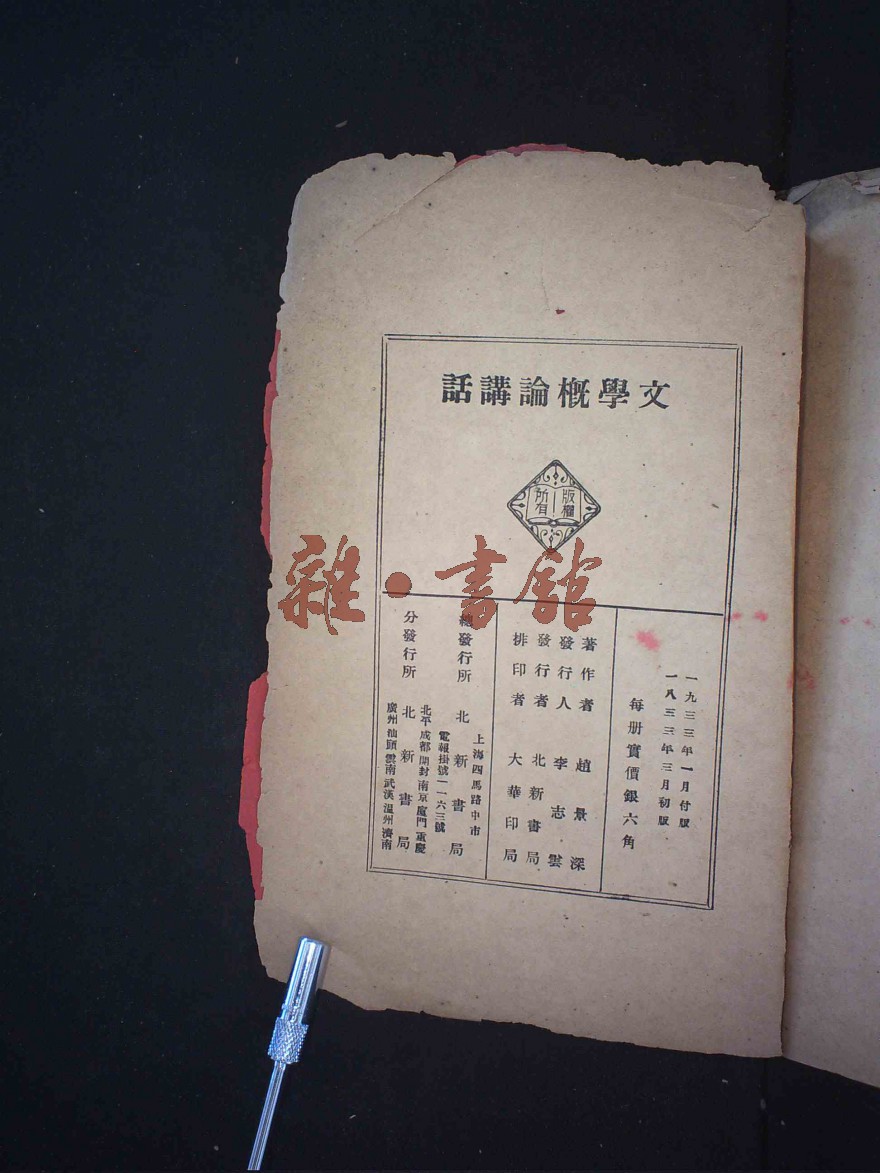 文學概論講話
版權
所有
一九三三年一月付版
一八三三年三月初版
每册實價銀六角
著作者 趙景深
發行人 李志雲
發行者 北新書局
排印者 大華印局
上海四馬路中市
總發行所 北新書局
電報掛號一一六三號
北平成都開封南京廈門重慶
分發行所 北新書局
廣州汕頭雲南武漢溫州濟南
雜·書館